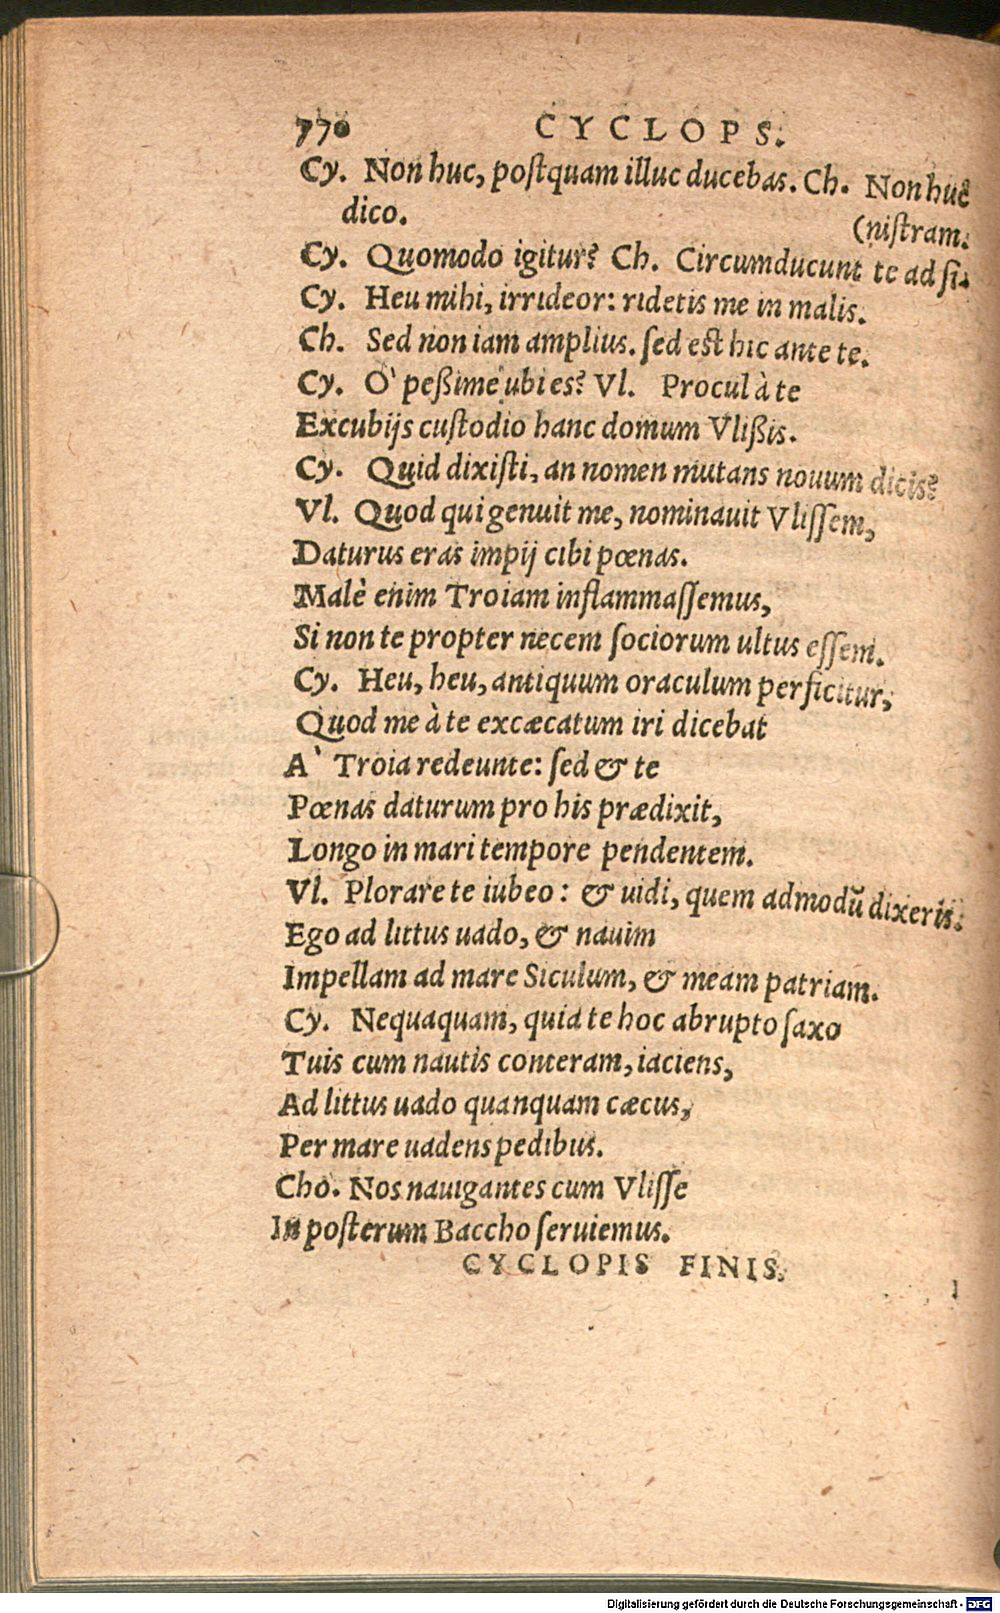 770 CYCLOPS.
Cy. Non huc, postquam illuc ducebas. Ch. Non huc
dico. (nistram.
Cy. Quomodo igitur? Ch. Circumducunt te ad si-
Cy. Heu mihi, irrideor: ridetis me in malis.
Ch. Sed non iam amplius. sed est hic ante te.
Cy. O` peßime ubi es? Vl. Procul à te
Excubijs custodio hanc domum Vlißis.
Cy. Quid dixisti, an nomen mutans nouum dicis?
Vl. Quod qui genuit me, nominauit Vlissem,
Daturus eras impij cibi pœnas.
Malè enim Troiam inflammassemus,
Si non te propter necem sociorum ultus essem.
Cy. Heu, heu, antiquum oraculum perficitur,
Quod me à te excæcatum iri dicebat
A` Troia redeunte: sed & te
Pœnas daturum pro his prædixit,
Longo in mari tempore pendentem.
Vl. Plorare te iubeo: & uidi, quem admodũ dixeris.
Ego ad littus uado, & nauim
Impellam ad mare Siculum, & meam patriam.
Cy. Nequaquam, quia te hoc abrupto saxo
Tuis cum nautis conteram, iaciens,
Ad littus uado quanquam cæcus,
Per mare uadens pedibus.
Cho. Nos nauigantes cum Vlisse
In posterum Baccho seruiemus.
CYCLOPIS FINIS.
Digitalisierung gefördert durch die Deutsche Forschungsgemeinschaft - DFG